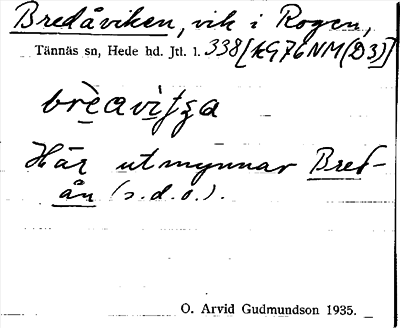 Bredåviken, vik i Rogen,
Tännäs sn, Hede hd. Jtl. l. 338[KG76NM(D3)]
Här utmynnar Bred-
ån (s.d.o.).
O. Arvid Gudmundson 1935.